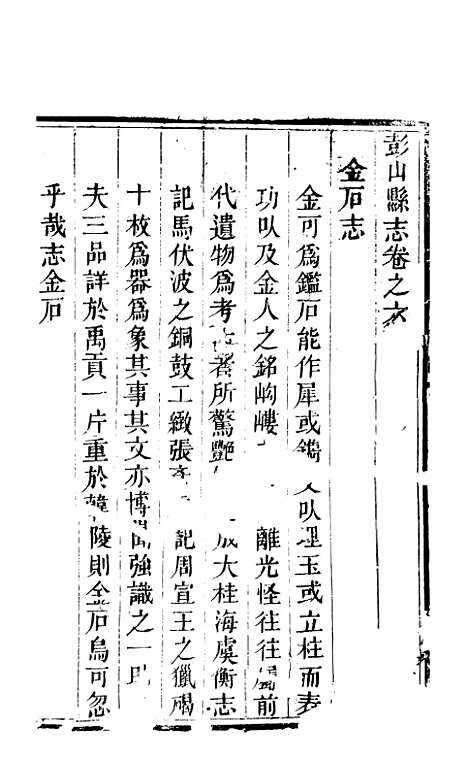 彭山縣志卷之六
金石志
金可爲鑑石能作犀或鐫以埋玉或立柱而表
功以及金人之銘岣嶁離光怪往往屬前
代遺物爲考者所驚艷成大桂海虞衡志
記馬伏波之銅鼓工緻張記周宣王之獵碣
十枚爲器爲象其事其文亦博聞強識之一助
夫三品詳於禹貢一片重於韓陵則金石烏可忽
乎哉志金石